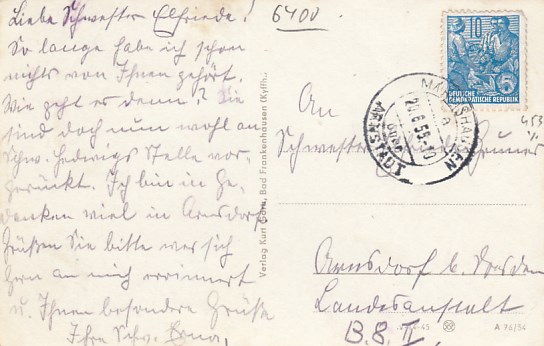 Liebe Schwester Elfriede!
So lange habe ich schon
nichts von Ihnen gehört.
Wie geht es denn? Sie
sind doch nun wohl an
Schw. Hedwigs Stelle vor-
gerückt. Ich bin in Ge-
danken viel in Arnsdorf
Grüßen Sie bitte wer sich
gern an mich erinnert
u. Ihnen besondere Grüße
Ihre Schw. Erna.
6400
Verlag Kurt Glora, Bad Frankenhausen (Kyffh.
10
DEUTSCHE
DEMOKRATISCHE REPUBLIK
5
ARNSTADT
An
Schwester
Arnsdorf b. Dresden
Landesanstalt
B.8.II.
A 76/54